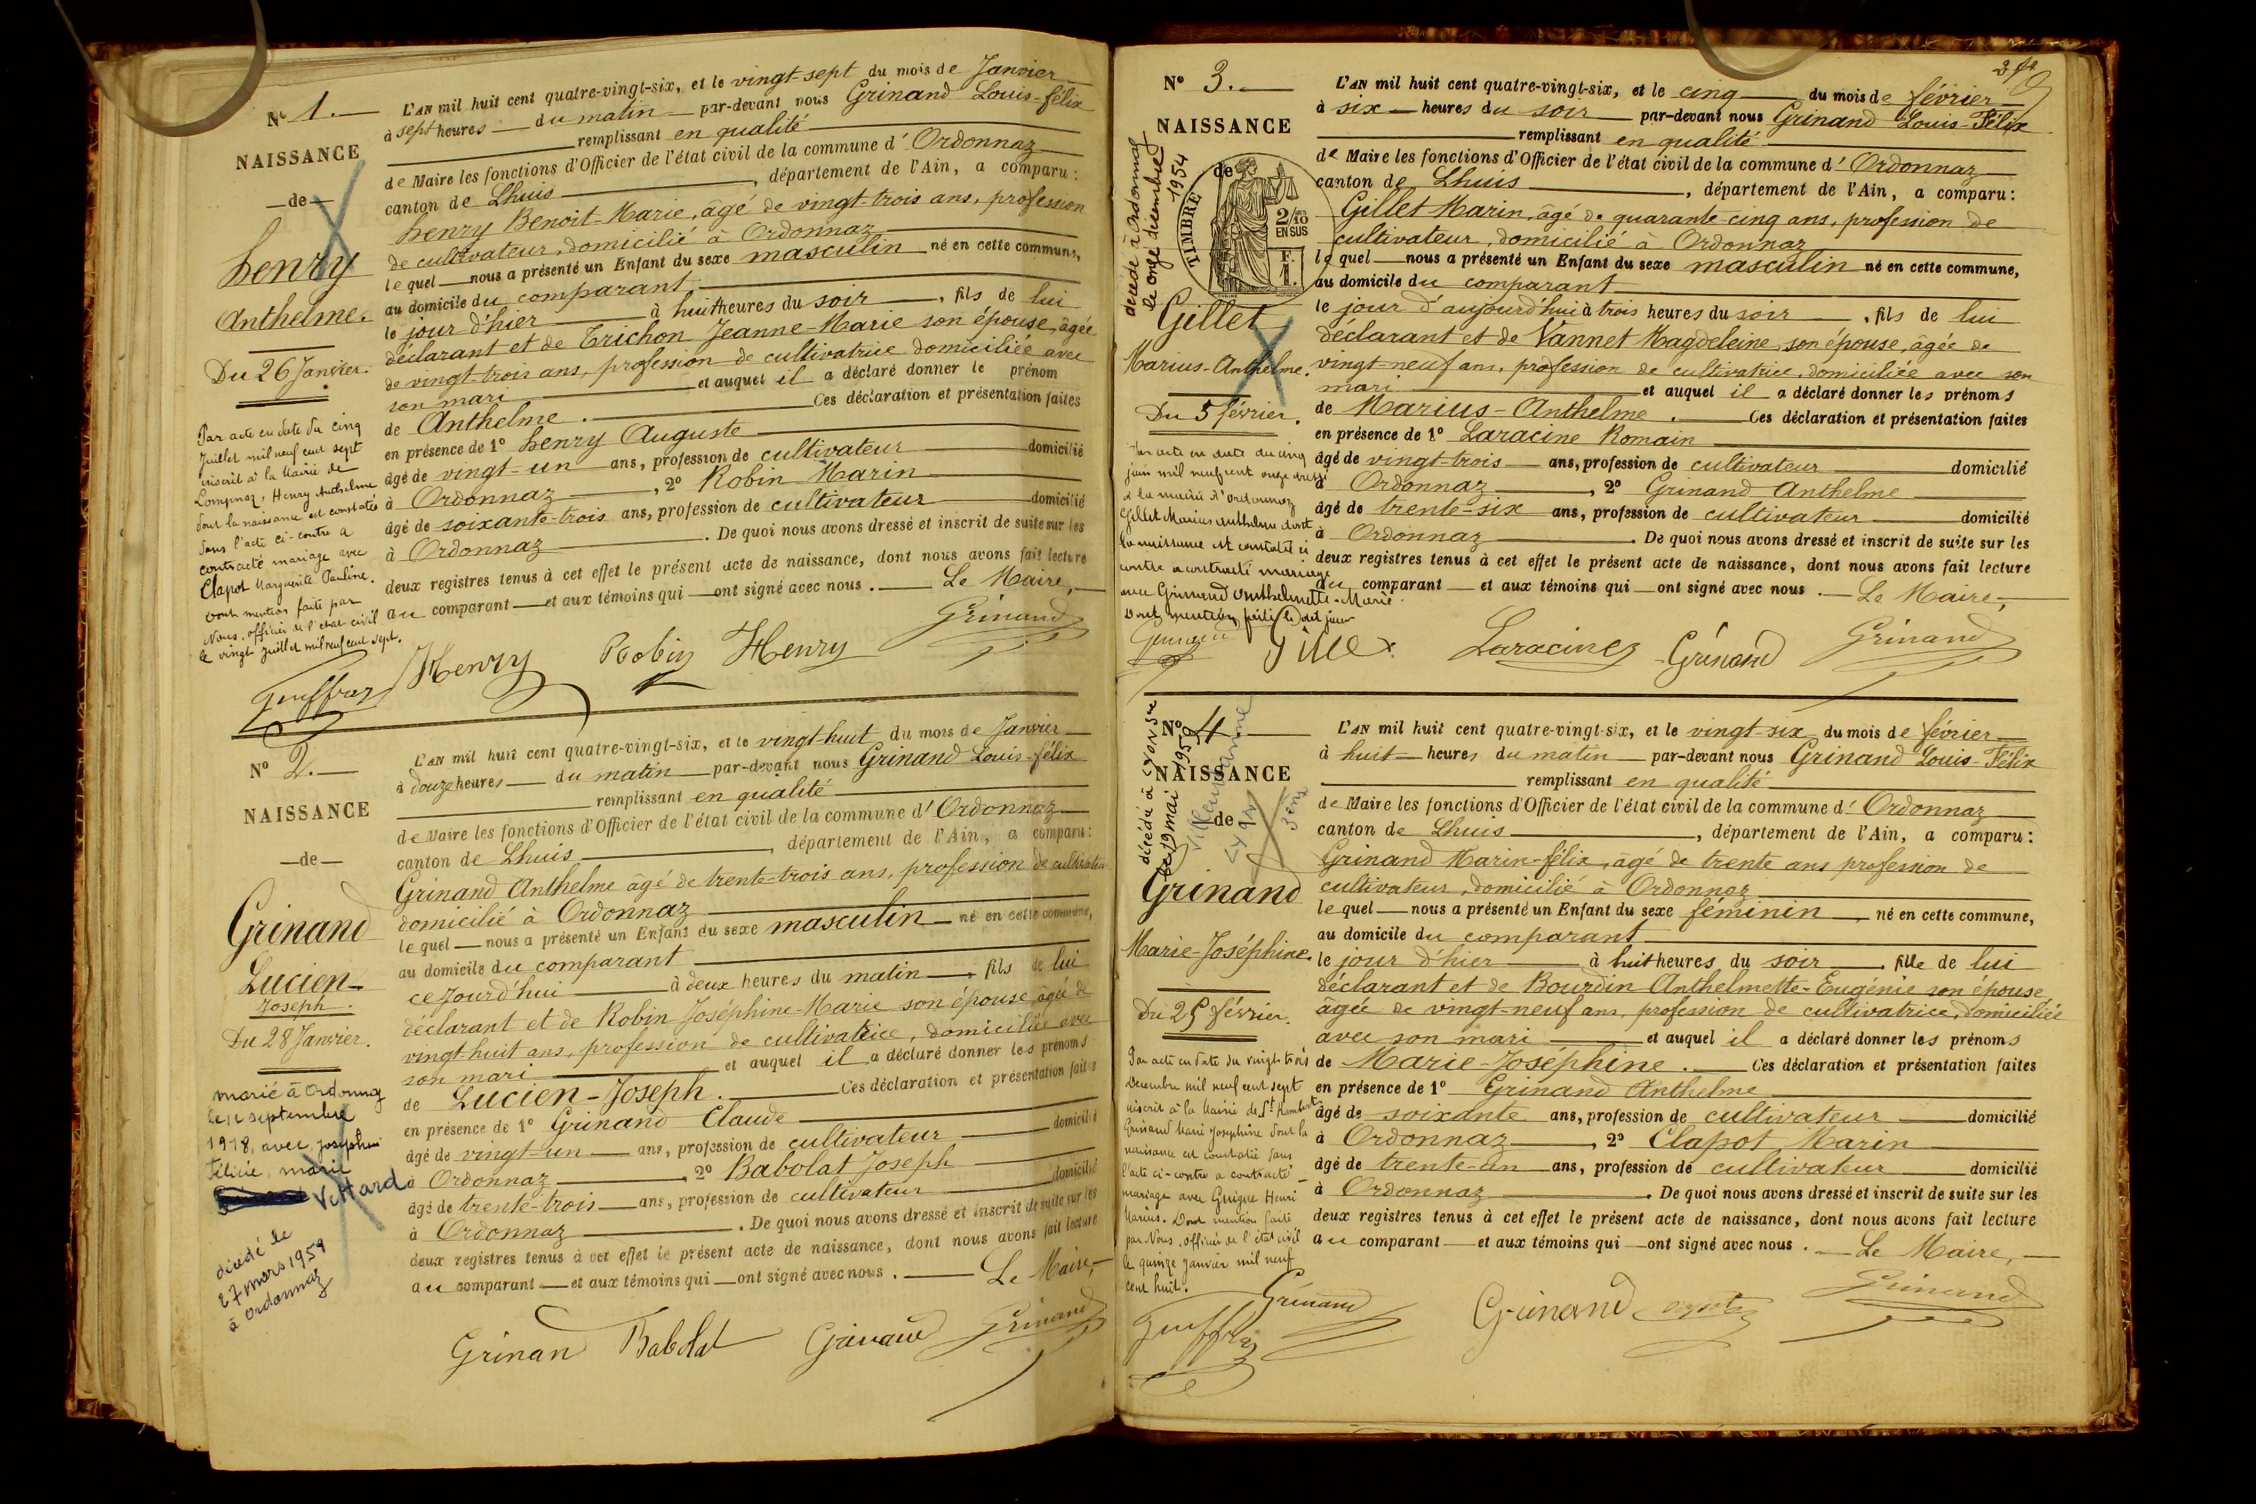 N° 1.
NAISSANCE
de
henry
Anthelme.
Du 26 Janvier.
Par acte en date du cinq
Juillet mil neuf cent sept
inscrit à la Mairie de
Lompnaz, Henry Anthelme
dont la naissance est constatée
dans l'acte ci-contre a
contracté mariage avec
Clapot Marguerite Pauline.
Dont mention faite par
Nous, officier de l'état civil
le vingt Juillet mil neuf cent sept.
L'AN mil huit cent quatre-vingt-six, et le vingt-sept du mois de Janvier
à sept heures du matin par-devant nous Grinand Louis-félix
remplissant en qualité
de Maire les fonctions d'Officier de l'état civil de la commune d' Ordonnaz
canton de Lhuis, département de l'Ain, a comparu:
henry Benoit-Marie, âgé de vingt-trois ans, profession
de cultivateur, domicilié à Ordonnaz
lequel nous a présenté un Enfant du sexe masculin né en cette commune,
au domicile du comparant
le jour d'hier à huit heures du soir, fils de lui
déclarant et de Trichon Jeanne-Marie son épouse, âgée
de vingt-trois ans, profession de cultivatrice domiciliée avec
son mari et auquel il a déclaré donner le prénom
de Anthelme. Ces déclaration et présentation faites
en présence de 1° henry Auguste
âgé de vingt-un ans, profession de cultivateur domicilié
à Ordonnaz, 2° Robin Marin
âgé de soixante-trois ans, profession de cultivateur domicilié
à Ordonnaz. De quoi nous avons dressé et inscrit de suite sur les
deux registres tenus à cet effet le présent acte de naissance, dont nous avons fait lecture
au comparant et aux témoins qui ont signé avec nous. Le Maire,
Henry Robin Henry Grinand
N° 2.
NAISSANCE
de
Grinand
Lucien-
Joseph.
Du 28 Janvier.
marié à Ordonnaz
le 12 septembre
1918, avec Joséphine
Félicie, marie
Vettard
décédé le
27 mars 1959
à Ordonnaz
L'AN mil huit cent quatre-vingt-six, et le vingt-huit du mois de Janvier
à douze heures du matin par-devant nous Grinand Louis-félix
remplissant en qualité
de Maire les fonctions d'Officier de l'état civil de la commune d' Ordonnaz
canton de Lhuis, département de l'Ain, a comparu:
Grinand Anthelme âgé de trente-trois ans, profession de cultivateur
domicilié à Ordonnaz
lequel nous a présenté un Enfant du sexe masculin né en cette commune,
au domicile du comparant
ce jourd'hui à deux heures du matin, fils de lui
déclarant et de Robin Joséphine-Marie son épouse, âgée de
vingt-huit ans, profession de cultivatrice, domiciliée avec
son mari et auquel il a déclaré donner les prénoms
de Lucien-Joseph. Ces déclaration et présentation faites
en présence de 1° Grinand Claude
âgé de vingt-un ans, profession de cultivateur domicilié
à Ordonnaz, 2° Babolat Joseph
âgé de trente-trois ans, profession de cultivateur domicilié
à Ordonnaz. De quoi nous avons dressé et inscrit de suite sur les
deux registres tenus à cet effet le présent acte de naissance, dont nous avons fait lecture
au comparant et aux témoins qui ont signé avec nous. Le Maire,
Grinan Babolat Grinand Grinand
N° 3.
NAISSANCE
de
décédé à Ordonnaz
le onze décembre 1954
TIMBRE
2/10
EN SUS
F.
1.
Gillet
Marius-Anthelme.
Du 5 février.
Par acte en date du cinq
juin mil neuf cent onze dressé
à la mairie d'Ordonnaz
Gillet Marius Anthelme dont
la naissance est constatée ci
contre a contracté mariage
avec Grinand Anthelmette-Marie.
Dont mention faite le dit jour
L'AN mil huit cent quatre-vingt-six, et le cinq du mois de février
à six heures du soir par-devant nous Grinand Louis-Félix
remplissant en qualité
de Maire les fonctions d'Officier de l'état civil de la commune d' Ordonnaz
canton de Lhuis, département de l'Ain, a comparu:
Gillet Marin, âgé de quarante-cinq ans, profession de
cultivateur, domicilié à Ordonnaz
lequel nous a présenté un Enfant du sexe masculin né en cette commune,
au domicile du comparant
le jour d'aujourd'hui à trois heures du soir, fils de lui
déclarant et de Vannet Magdeleine, son épouse, âgée de
vingt-neuf ans, profession de cultivatrice, domiciliée avec son
mari et auquel il a déclaré donner les prénoms
de Marius-Anthelme. Ces déclaration et présentation faites
en présence de 1° Laracine Romain
âgé de vingt-trois ans, profession de cultivateur domicilié
à Ordonnaz, 2° Grinand Anthelme
âgé de trente-six ans, profession de cultivateur domicilié
à Ordonnaz. De quoi nous avons dressé et inscrit de suite sur les
deux registres tenus à cet effet le présent acte de naissance, dont nous avons fait lecture
au comparant et aux témoins qui ont signé avec nous. Le Maire,
Gillet Laracine Grinand Grinand
N° 4.
NAISSANCE
de
décédée à Lyon 3e
le 19 mai 1959
Villeurbanne
Grinand
Marie-Joséphine.
Du 25 février.
Par acte en date du vingt-trois
Décembre mil neuf cent sept
inscrit à la Mairie de St Rambert
Grinand Marie Joséphine dont la
naissance est constatée dans
l'acte ci-contre a contracté
mariage avec Guigue Henri
Marius. Dont mention faite
par Nous, officier de l'état civil
le quinze janvier mil neuf
cent huit.
L'AN mil huit cent quatre-vingt-six, et le vingt-six du mois de février
à huit heures du matin par-devant nous Grinand Louis-Félix
remplissant en qualité
de Maire les fonctions d'Officier de l'état civil de la commune d' Ordonnaz
canton de Lhuis, département de l'Ain, a comparu:
Grinand Marin-félix, âgé de trente ans profession de
cultivateur, domicilié à Ordonnaz
lequel nous a présenté un Enfant du sexe féminin né en cette commune,
au domicile du comparant
le jour d'hier à huit heures du soir, fille de lui
déclarant et de Bourdin Anthelmette-Eugénie son épouse
âgée de vingt-neuf ans, profession de cultivatrice, domiciliée
avec son mari et auquel il a déclaré donner les prénoms
de Marie-Joséphine. Ces déclaration et présentation faites
en présence de 1° Grinand Anthelme
âgé de soixante ans, profession de cultivateur domicilié
à Ordonnaz, 2° Clapot Marin
âgé de trente-un ans, profession de cultivateur domicilié
à Ordonnaz. De quoi nous avons dressé et inscrit de suite sur les
deux registres tenus à cet effet le présent acte de naissance, dont nous avons fait lecture
au comparant et aux témoins qui ont signé avec nous. Le Maire,
Grinand Grinand Grinand